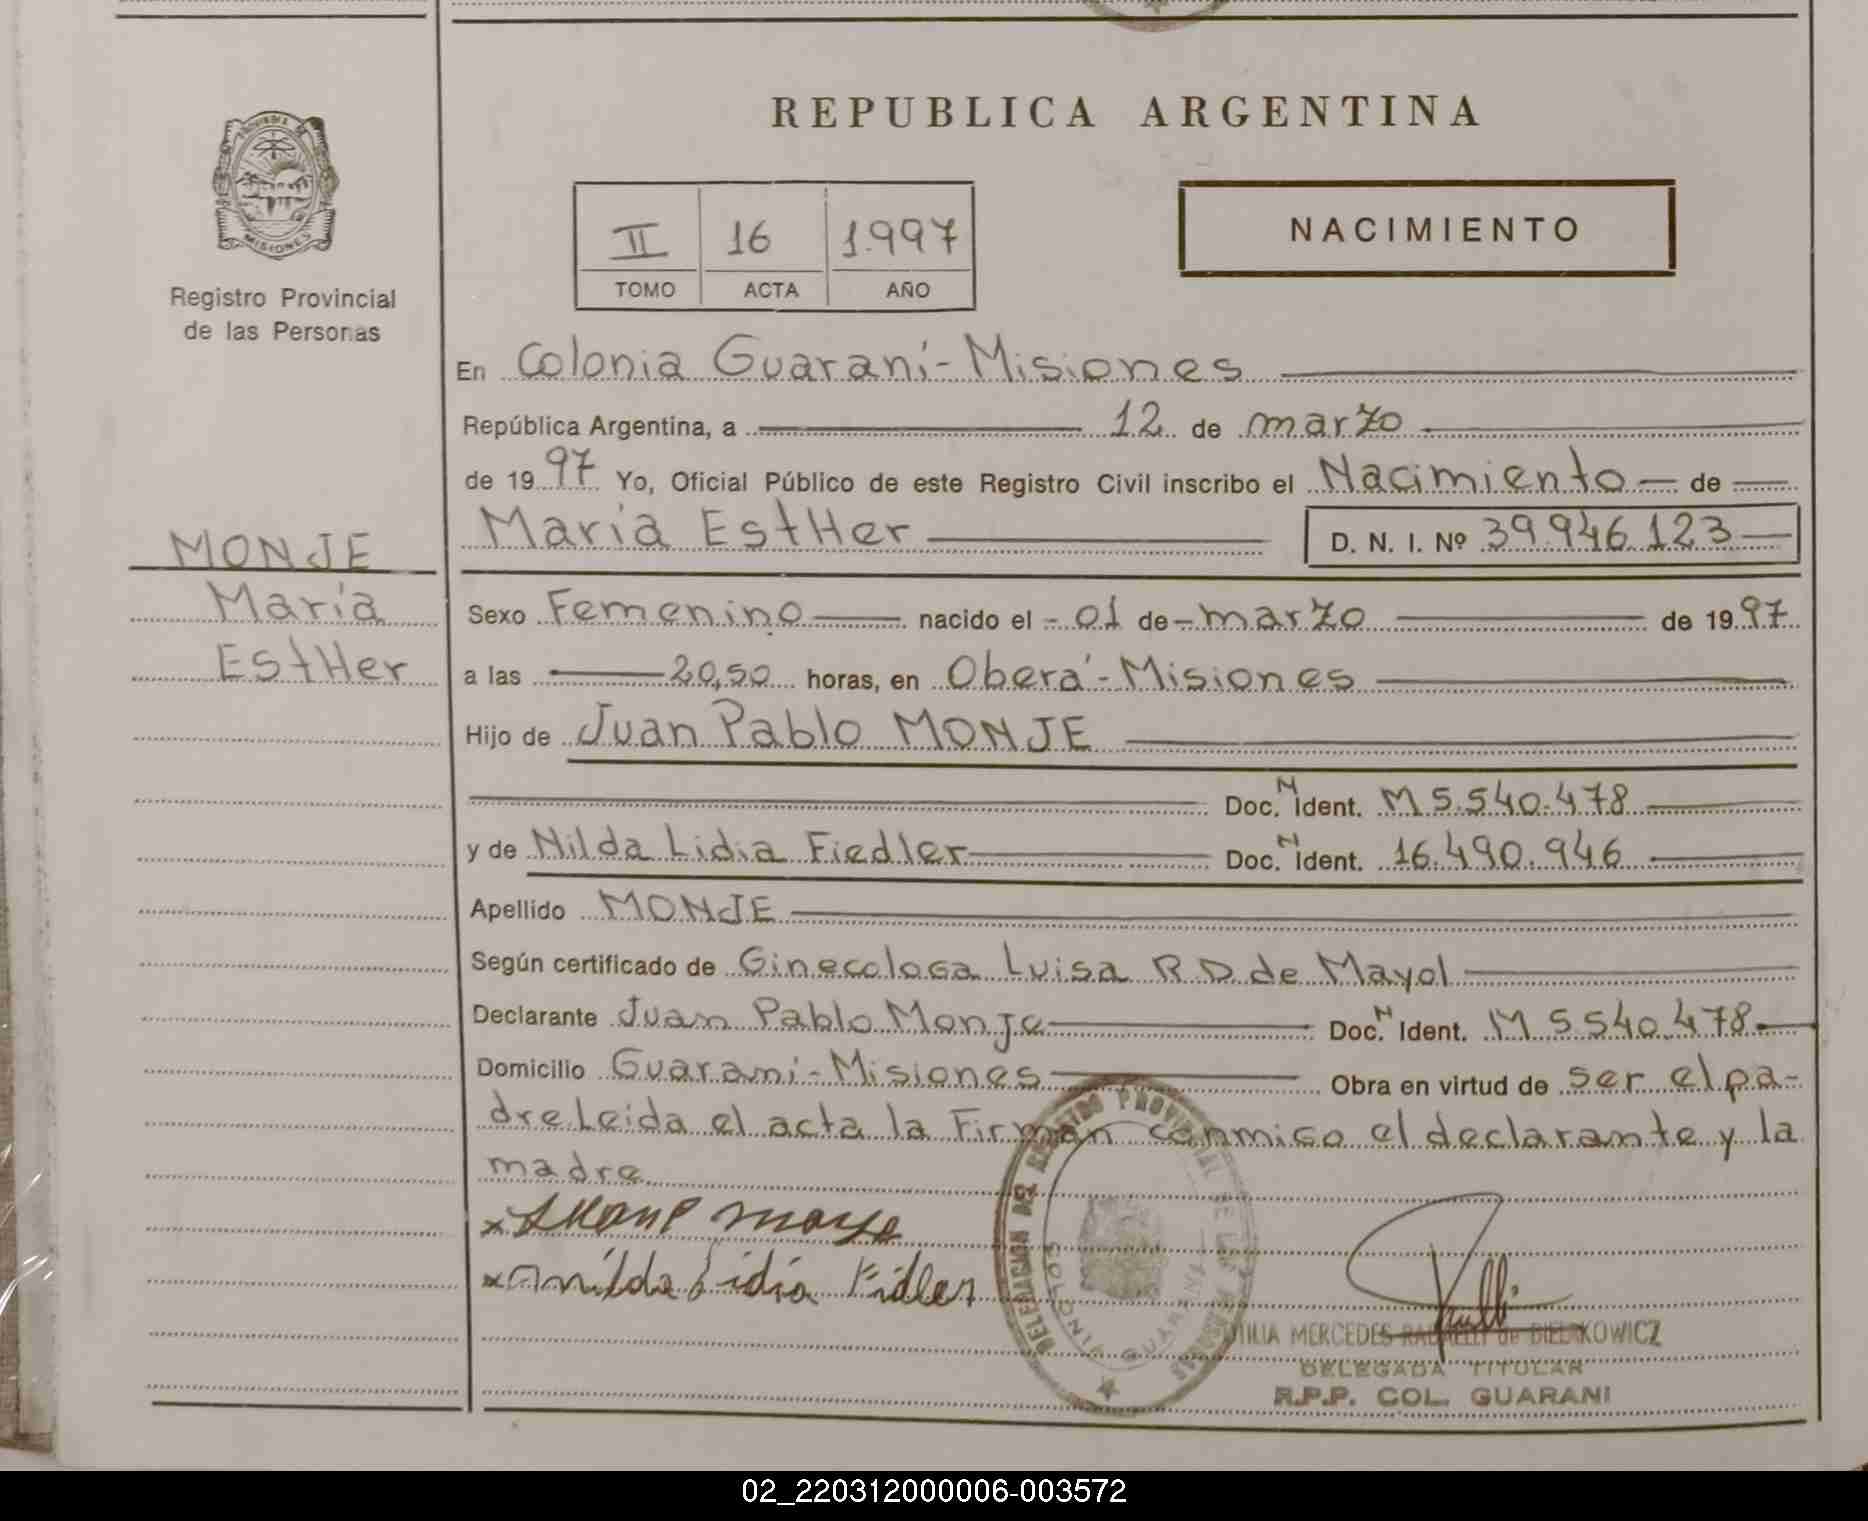 REPUBLICA ARGENTINA
PROVINCIA DE
MISIONES
Registro Provincial
de las Personas
II 16 1.997
TOMO ACTA AÑO
NACIMIENTO
En Colonia Guaraní - Misiones
República Argentina, a 12 de marzo
de 19 97 Yo, Oficial Público de este Registro Civil inscribo el Nacimiento de
María EstHer D. N. I. Nº 39.946.123
MONJE
María
EstHer
Sexo Femenino nacido el - 01 de - marzo de 19 97
a las 20,50 horas, en Oberá - Misiones
Hijo de Juan Pablo MONJE
Doc. N Ident. M 5.540.478
y de Nilda Lidia Fiedler Doc. N Ident. 16.490.946
Apellido MONJE
Según certificado de Ginecologa Luisa R D de Mayol
Declarante Juan Pablo Monje Doc. N Ident. M 5540.478
Domicilio Guaraní - Misiones Obra en virtud de ser el pa-
dre Leida el acta la Firman conmigo el declarante y la
madre
x
x Anilda Lidia Fidler
DELEGACION DEL REGISTRO PROVINCIAL DE LAS PERSONAS
COLONIA GUARANI
MERCEDES de BIELAKOWICZ
DELEGADA TITULAR
R.P.P. COL. GUARANI
02_220312000006-003572